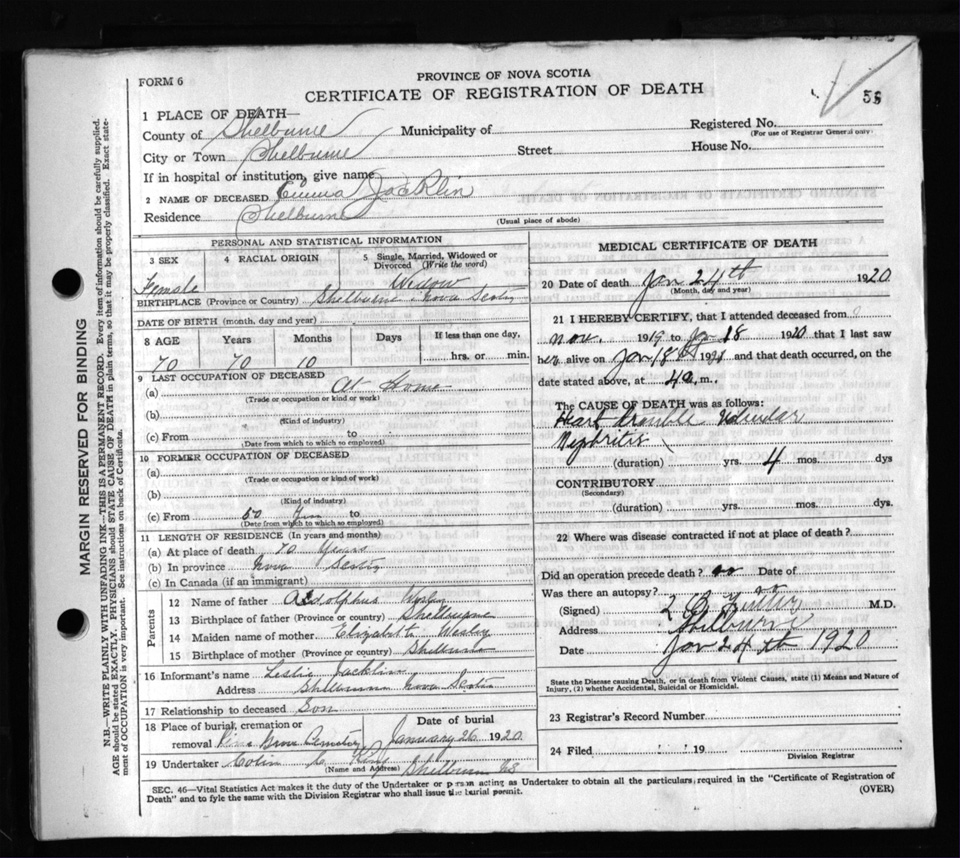 FORM 6
PROVINCE OF NOVA SCOTIA
CERTIFICATE OF REGISTRATION OF DEATH
1 PLACE OF DEATH—
County of Shelburne Municipality of Registered No.
(For use of Registrar General only)
City or Town Shelburne Street House No.
If in hospital or institution, give name
2 NAME OF DECEASED Emma Jacklin
Residence Shelburne
(Usual place of abode)
MARGIN RESERVED FOR BINDING
N.B.—WRITE PLAINLY WITH UNFADING INK—THIS IS A PERMANENT RECORD. Every item of information should be carefully supplied.
AGE should be stated EXACTLY. PHYSICIANS should STATE CAUSE OF DEATH in plain terms, so that it may be properly classified. Exact state-
ment of OCCUPATION is very important. See instructions on back of Certificate.
PERSONAL AND STATISTICAL INFORMATION
3 SEX 4 RACIAL ORIGIN 5 Single, Married, Widowed or
Divorced (Write the word)
Female Widow
BIRTHPLACE (Province or Country) Shelburne Nova Scotia
DATE OF BIRTH (month, day and year)
8 AGE Years Months Days If less than one day,
70 70 10 hrs. or min.
9 LAST OCCUPATION OF DECEASED
(a) At Home
(Trade or occupation or kind of work)
(b)
(Kind of industry)
(c) From to
(Date from which to which so employed)
10 FORMER OCCUPATION OF DECEASED
(a)
(Trade or occupation or kind of work)
(b)
(Kind of industry)
(c) From to
(Date from which to which so employed)
11 LENGTH OF RESIDENCE (In years and months)
(a) At place of death 70 Years
(b) In province Nova Scotia
(c) In Canada (if an immigrant)
Parents
12 Name of father Adolphus
13 Birthplace of father (Province or country) Shelburne
14 Maiden name of mother Elizabeth
15 Birthplace of mother (Province or country) Shelburne
16 Informant's name Leslie Jacklin
Address Shelburne Nova Scotia
17 Relationship to deceased Son
18 Place of burial, cremation or Date of burial
removal Pine Grove Cemetery January 26 1920
19 Undertaker Colin C
(Name and Address) Shelburne NS
MEDICAL CERTIFICATE OF DEATH
20 Date of death Jan 24th 1920
(Month, day and year)
21 I HEREBY CERTIFY, that I attended deceased from
Nov. 1919 to Ja 18 1920 that I last saw
her alive on Jan 18th and that death occurred, on the
date stated above, at 4 a, m.,
The CAUSE OF DEATH was as follows:
Heart Trouble Valvular
Nephritis
(duration) yrs. 4 mos. dys
CONTRIBUTORY
(Secondary)
(duration) yrs. mos. dys.
22 Where was disease contracted if not at place of death?
Did an operation precede death? no Date of
Was there an autopsy? no
(Signed) M.D.
Address Shelburne
Date Jan 24th 1920
State the Disease causing Death, or in death from Violent Causes, state (1) Means and Nature of
Injury, (2) whether Accidental, Suicidal or Homicidal.
23 Registrar's Record Number
24 Filed 19
Division Registrar
SEC. 46—Vital Statistics Act makes it the duty of the Undertaker or person acting as Undertaker to obtain all the particulars required in the "Certificate of Registration of
Death" and to fyle the same with the Division Registrar who shall issue the burial permit. (OVER)